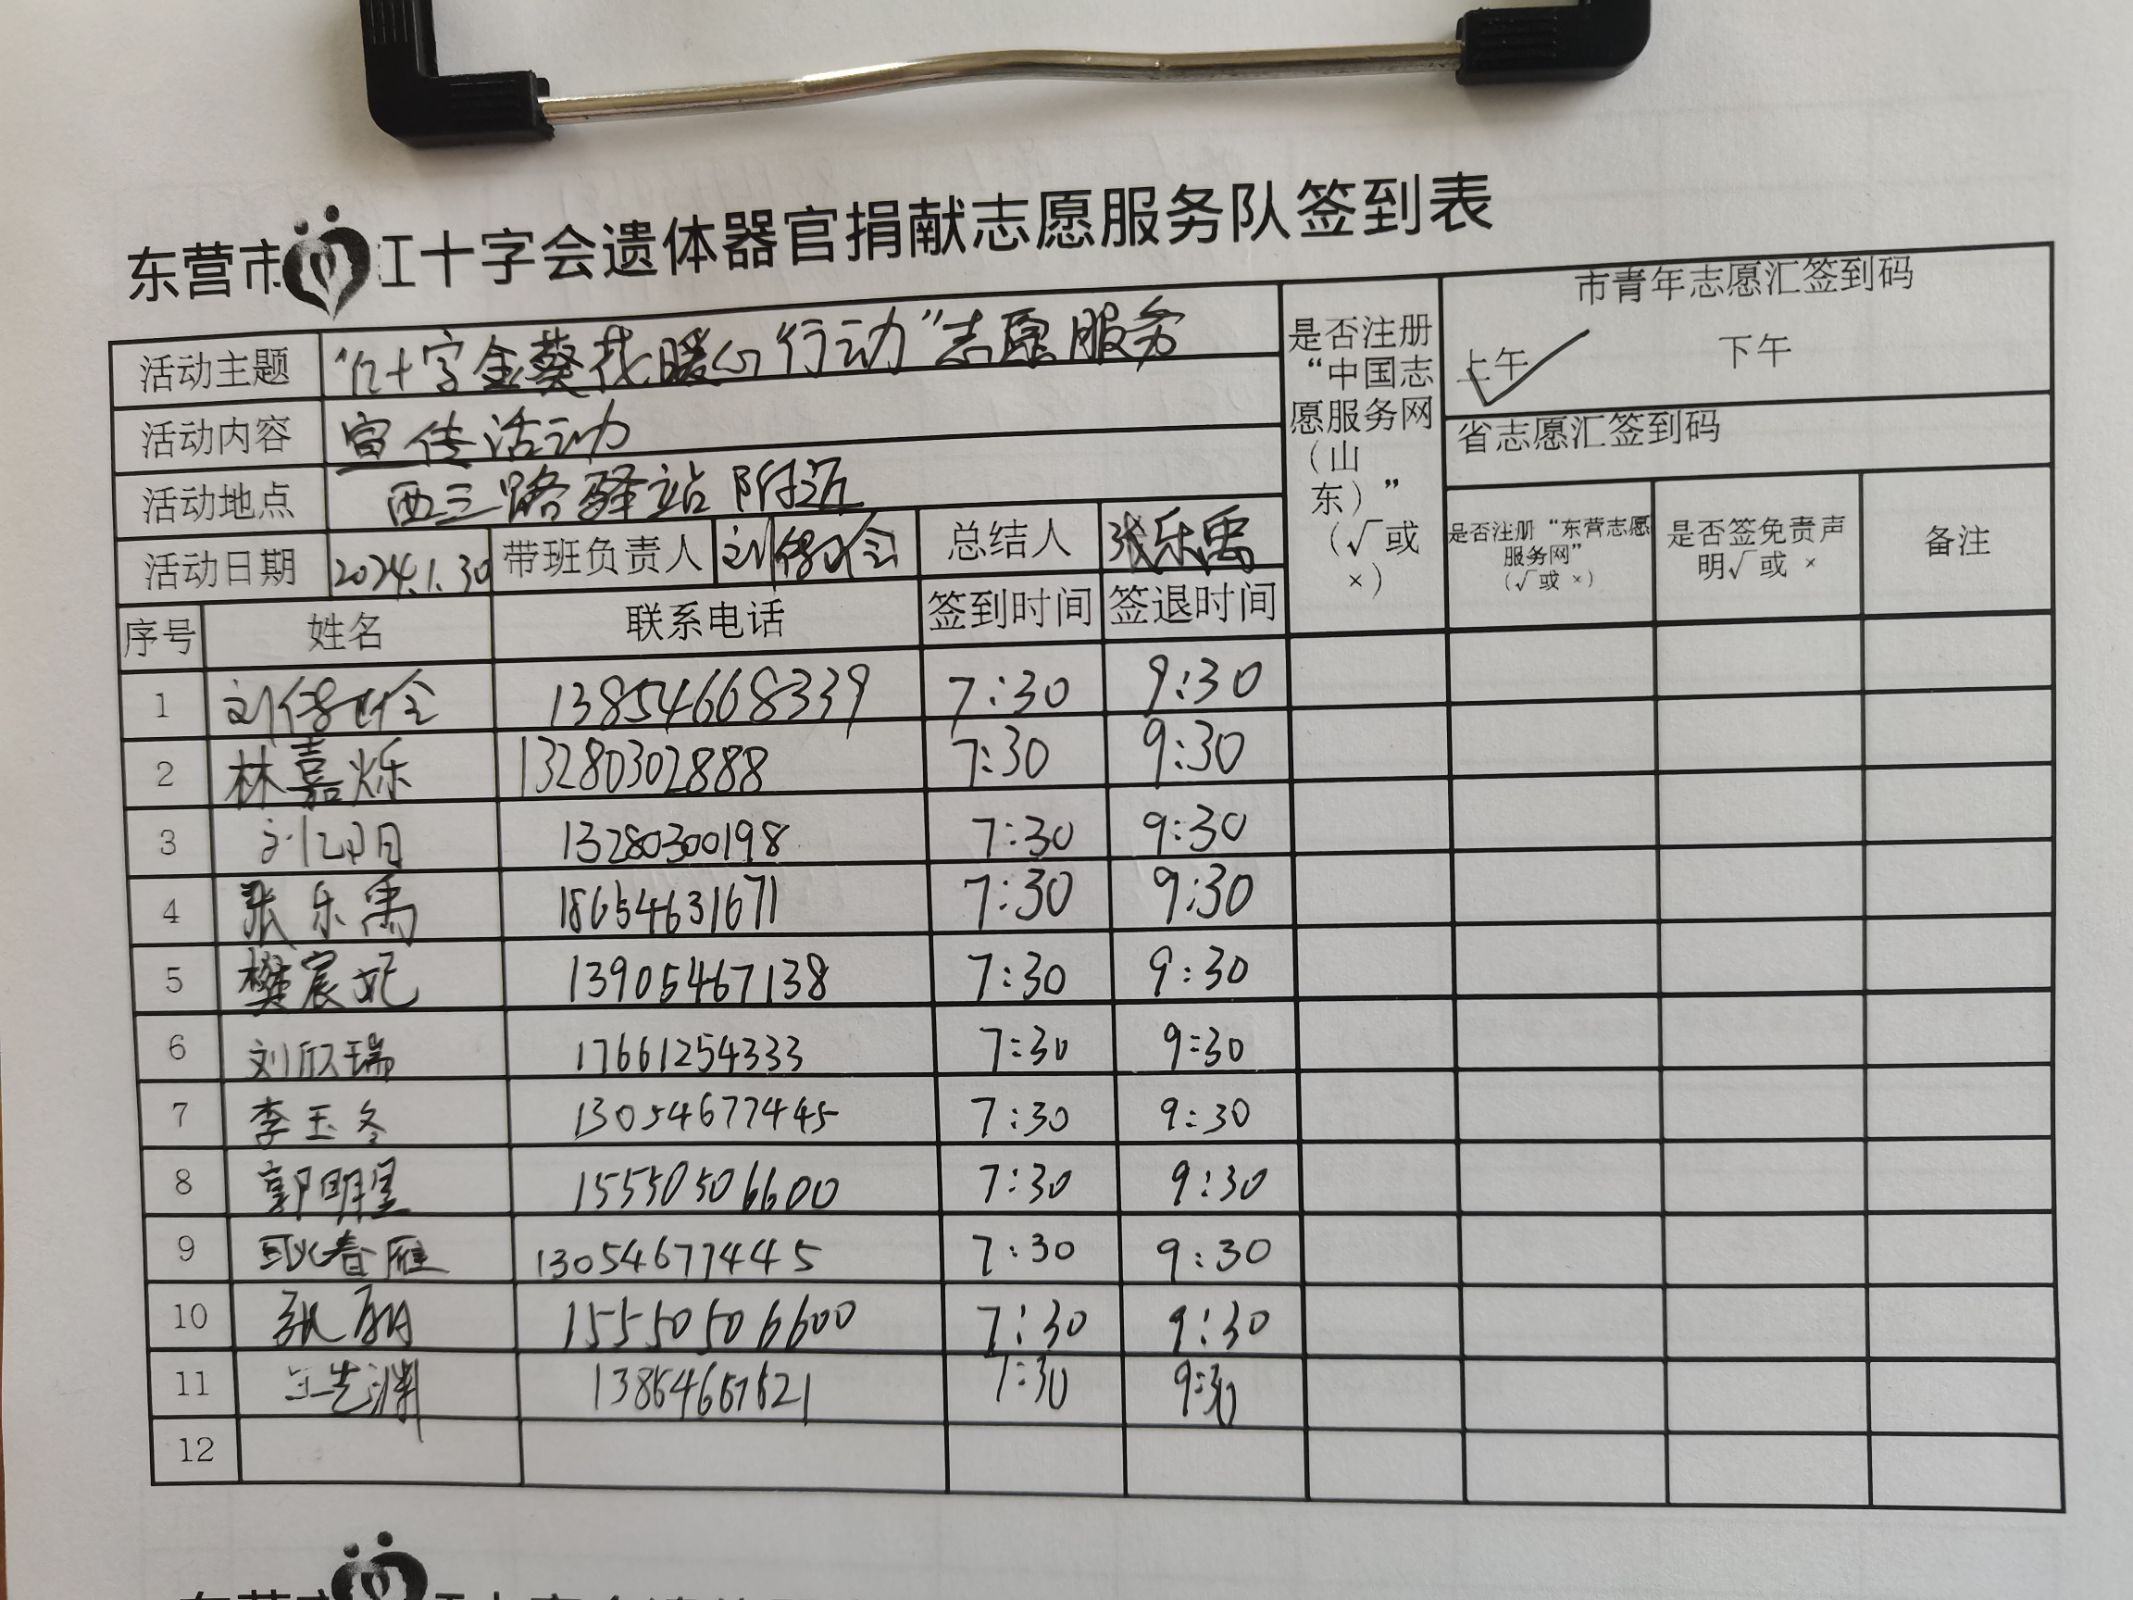 东营市红十字会遗体器官捐献志愿服务队签到表
活动主题 "红十字金葵花暖心行动"志愿服务
活动内容 宣传活动
活动地点 西三路驿站附近
活动日期 2024.1.30 带班负责人 总结人 张乐禹
是否注册“中国志愿服务网(山东)”(√或×)
市青年志愿汇签到码
上午 √ 下午
省志愿汇签到码
是否注册“东营志愿服务网”(√或×) 是否签免责声明√或× 备注
序号 姓名 联系电话 签到时间 签退时间
1 13854668339 7:30 9:30
2 林嘉烁 13280302888 7:30 9:30
3 13280300198 7:30 9:30
4 张乐禹 18654631671 7:30 9:30
5 樊宸妃 13905467138 7:30 9:30
6 刘欣瑞 17661254333 7:30 9:30
7 李玉冬 13054677445 7:30 9:30
8 郭明星 15550506600 7:30 9:30
9 春雁 13054677445 7:30 9:30
10 15550506600 7:30 9:30
11 7:30 9:30
12